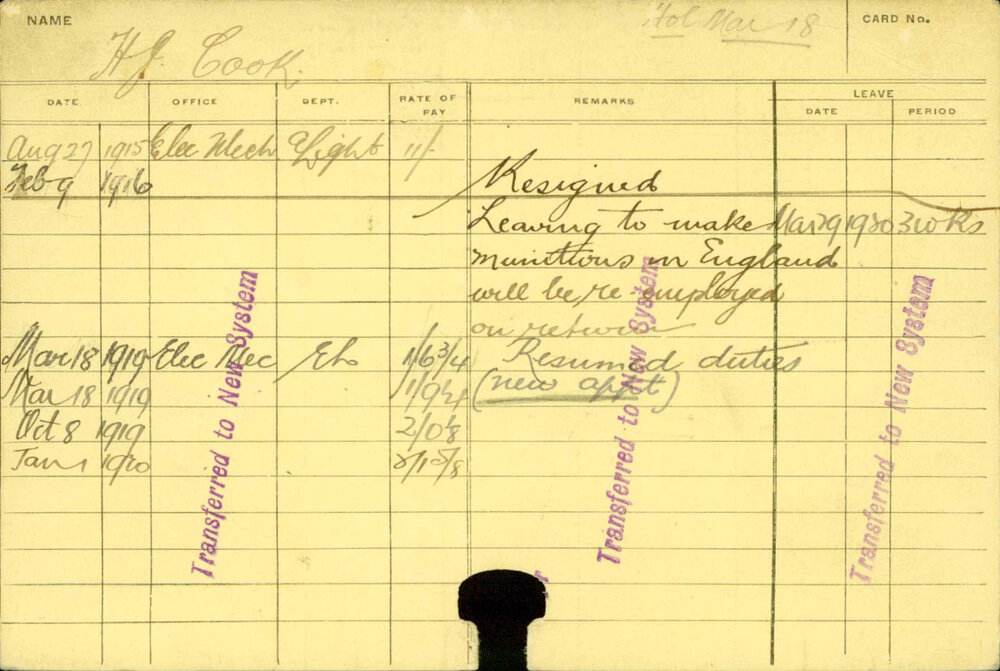 NAME
H.J. Cook.
Hol Mar 18
CARD No.
DATE OFFICE DEPT. RATE OF PAY REMARKS LEAVE
DATE PERIOD
Aug 27 1915 Elec Mech Light 11/-
Feb 9 1916 Resigned
Leaving to make Mar 29 1920 3 wks
munitions in England
will be re-employed
on return
Mar 18 1919 Elec Mec EL 1/6 3/4 Resumed duties
Mar 18 1919 (new appt)
Oct 8 1919 2/0 1/8
Jan 1 1920
Transferred to New System
Transferred to New System
Transferred to New System